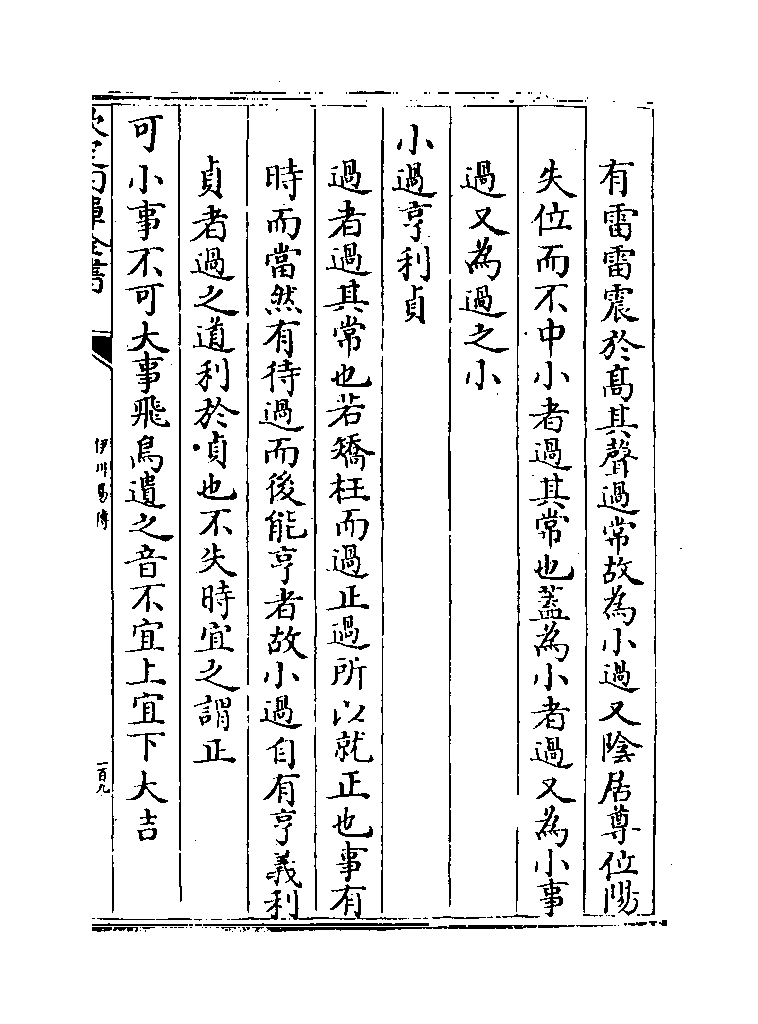 有雷雷震於髙其聲過常故為小過又陰居尊位陽
失位而不中小者過其常也葢為小者過又為小事
過又為過之小
小過亨利貞
過者過其常也若矯枉而過正過所以就正也事有
時而當然有待過而後能亨者故小過自有亨義利
貞者過之道利於貞也不失時宜之謂正
可小事不可大事飛鳥遺之音不宜上宜下大吉
欽定四庫全書
伊川易傳
一百九